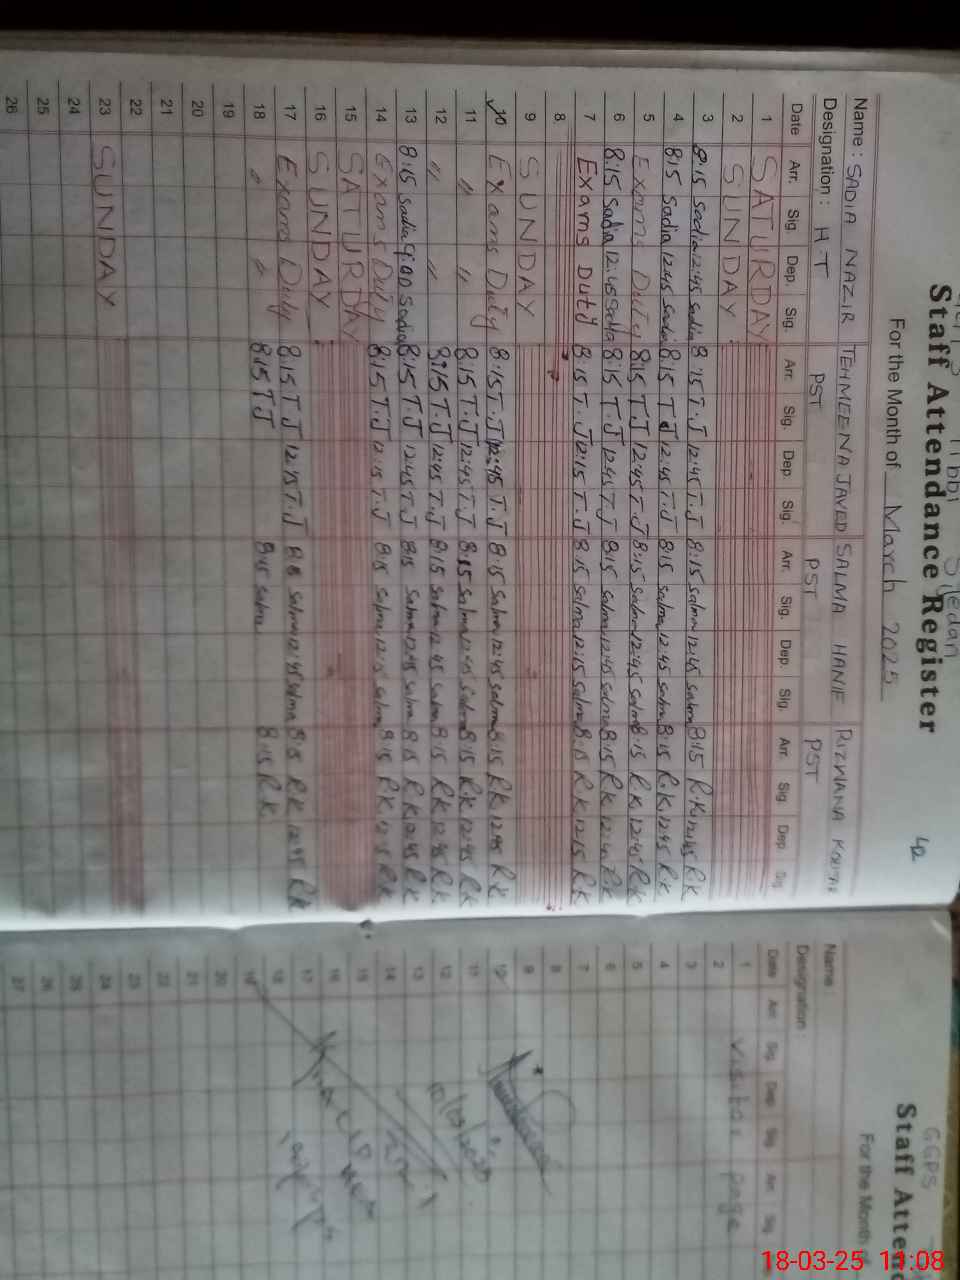 Staff Attendance Register
42
For the Month of March 2025
Name : SADIA NAZIR TEHMEENA JAVED SALMA HANIF RIZWANA
Designation : H T PST PST PST
Date Arr. Sig. Dep. Sig. Arr. Sig. Dep. Sig. Arr. Sig. Dep. Sig. Arr. Sig. Dep. Sig.
1 SATURDAY
2 SUNDAY
3 8:15 Sadia 12:45 Sadia 8:15 T.J 12:45 T.J 8:15 Salma 12:45 Salma 8:15 R.K 12:45 R.K
4 8:15 Sadia 12:45 Sadia 8:15 TJ 12:45 T.J 8:15 Salma 12:45 Salma 8:15 R.K 12:45 R.K
5 Exams Duty 8:15 T.J 12:45 T.J 8:15 Salma 12:45 Salma 8:15 R.K 12:45 R.K
6 8:15 Sadia 12:45 Sadia 8:15 T.J 12:45 T.J 8:15 Salma 12:45 Salma 8:15 RK 12:45 R.K
7 Exams Duty 8:15 T.J 12:15 T.J 8:15 Salma 12:15 Salma 8:15 RK 12:15 R.K
8
9 SUNDAY
10 Exams Duty 8:15 T.J 12:45 T.J 8:15 Salma 12:45 Salma 8:15 RK 12:45 RK
11 " " 8:15 T.J 12:45 T.J 8:15 Salma 12:45 Salma 8:15 RK 12:45 RK
12 " " 8:15 T.J 12:45 T.J 8:15 Salma 12:45 Salma 8:15 RK 12:45 RK
13 8:15 Sadia 9:00 Sadia 8:15 T.J 12:45 T.J 8:15 Salma 12:45 Salma 8:15 RK 12:45 RK
14 Exams Duty 8:15 T.J 12:15 T.J 8:15 Salma 12:15 Salma 8:15 RK 12:15 RK
15 SATURDAY
16 SUNDAY
17 Exams Duty 8:15 T.J 12:45 T.J 8:15 Salma 12:45 Salma 8:15 RK 12:45 RK
18 " " 8:15 TJ 8:15 Salma 8:15 RK
19
20
21
22
23 SUNDAY
24
25
26
GGPS
Staff Atten
For the Month of
Name :
Designation :
Date Arr. Sig. Dep. Sig. Arr. Sig.
1
2 Visitor page
3
4
5
6
7
8
9
10
11
12
13
14
15
16
17
18
19
20
21
22
23
24
25
26
27
18-03-25 11:08